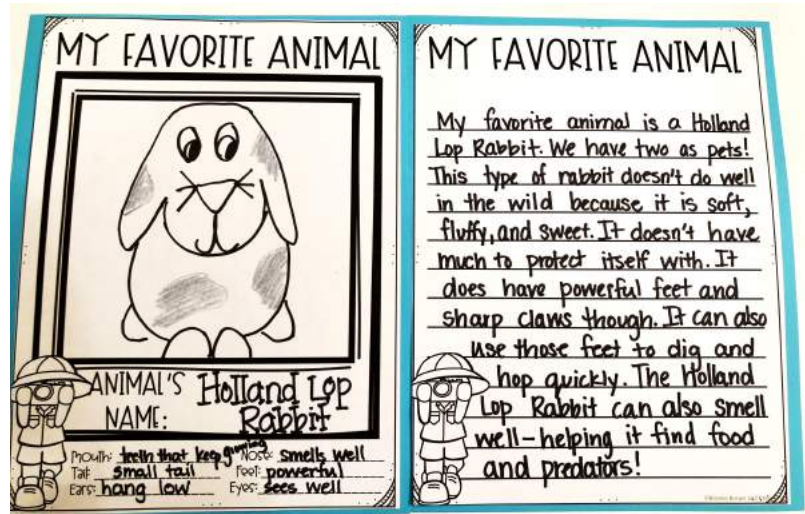 MY FAVORITE ANIMAL
ANIMAL'S NAME: Holland Lop Rabbit
Mouth: teeth that keep growing Nose: smells well
Tail: small tail Feet: powerful
Ears: hang low Eyes: sees well
MY FAVORITE ANIMAL
My favorite animal is a Holland
Lop Rabbit. We have two as pets!
This type of rabbit doesn't do well
in the wild because it is soft,
fluffy, and sweet. It doesn't have
much to protect itself with. It
does have powerful feet and
sharp claws though. It can also
use those feet to dig and
hop quickly. The Holland
Lop Rabbit can also smell
well-helping it find food
and predators!